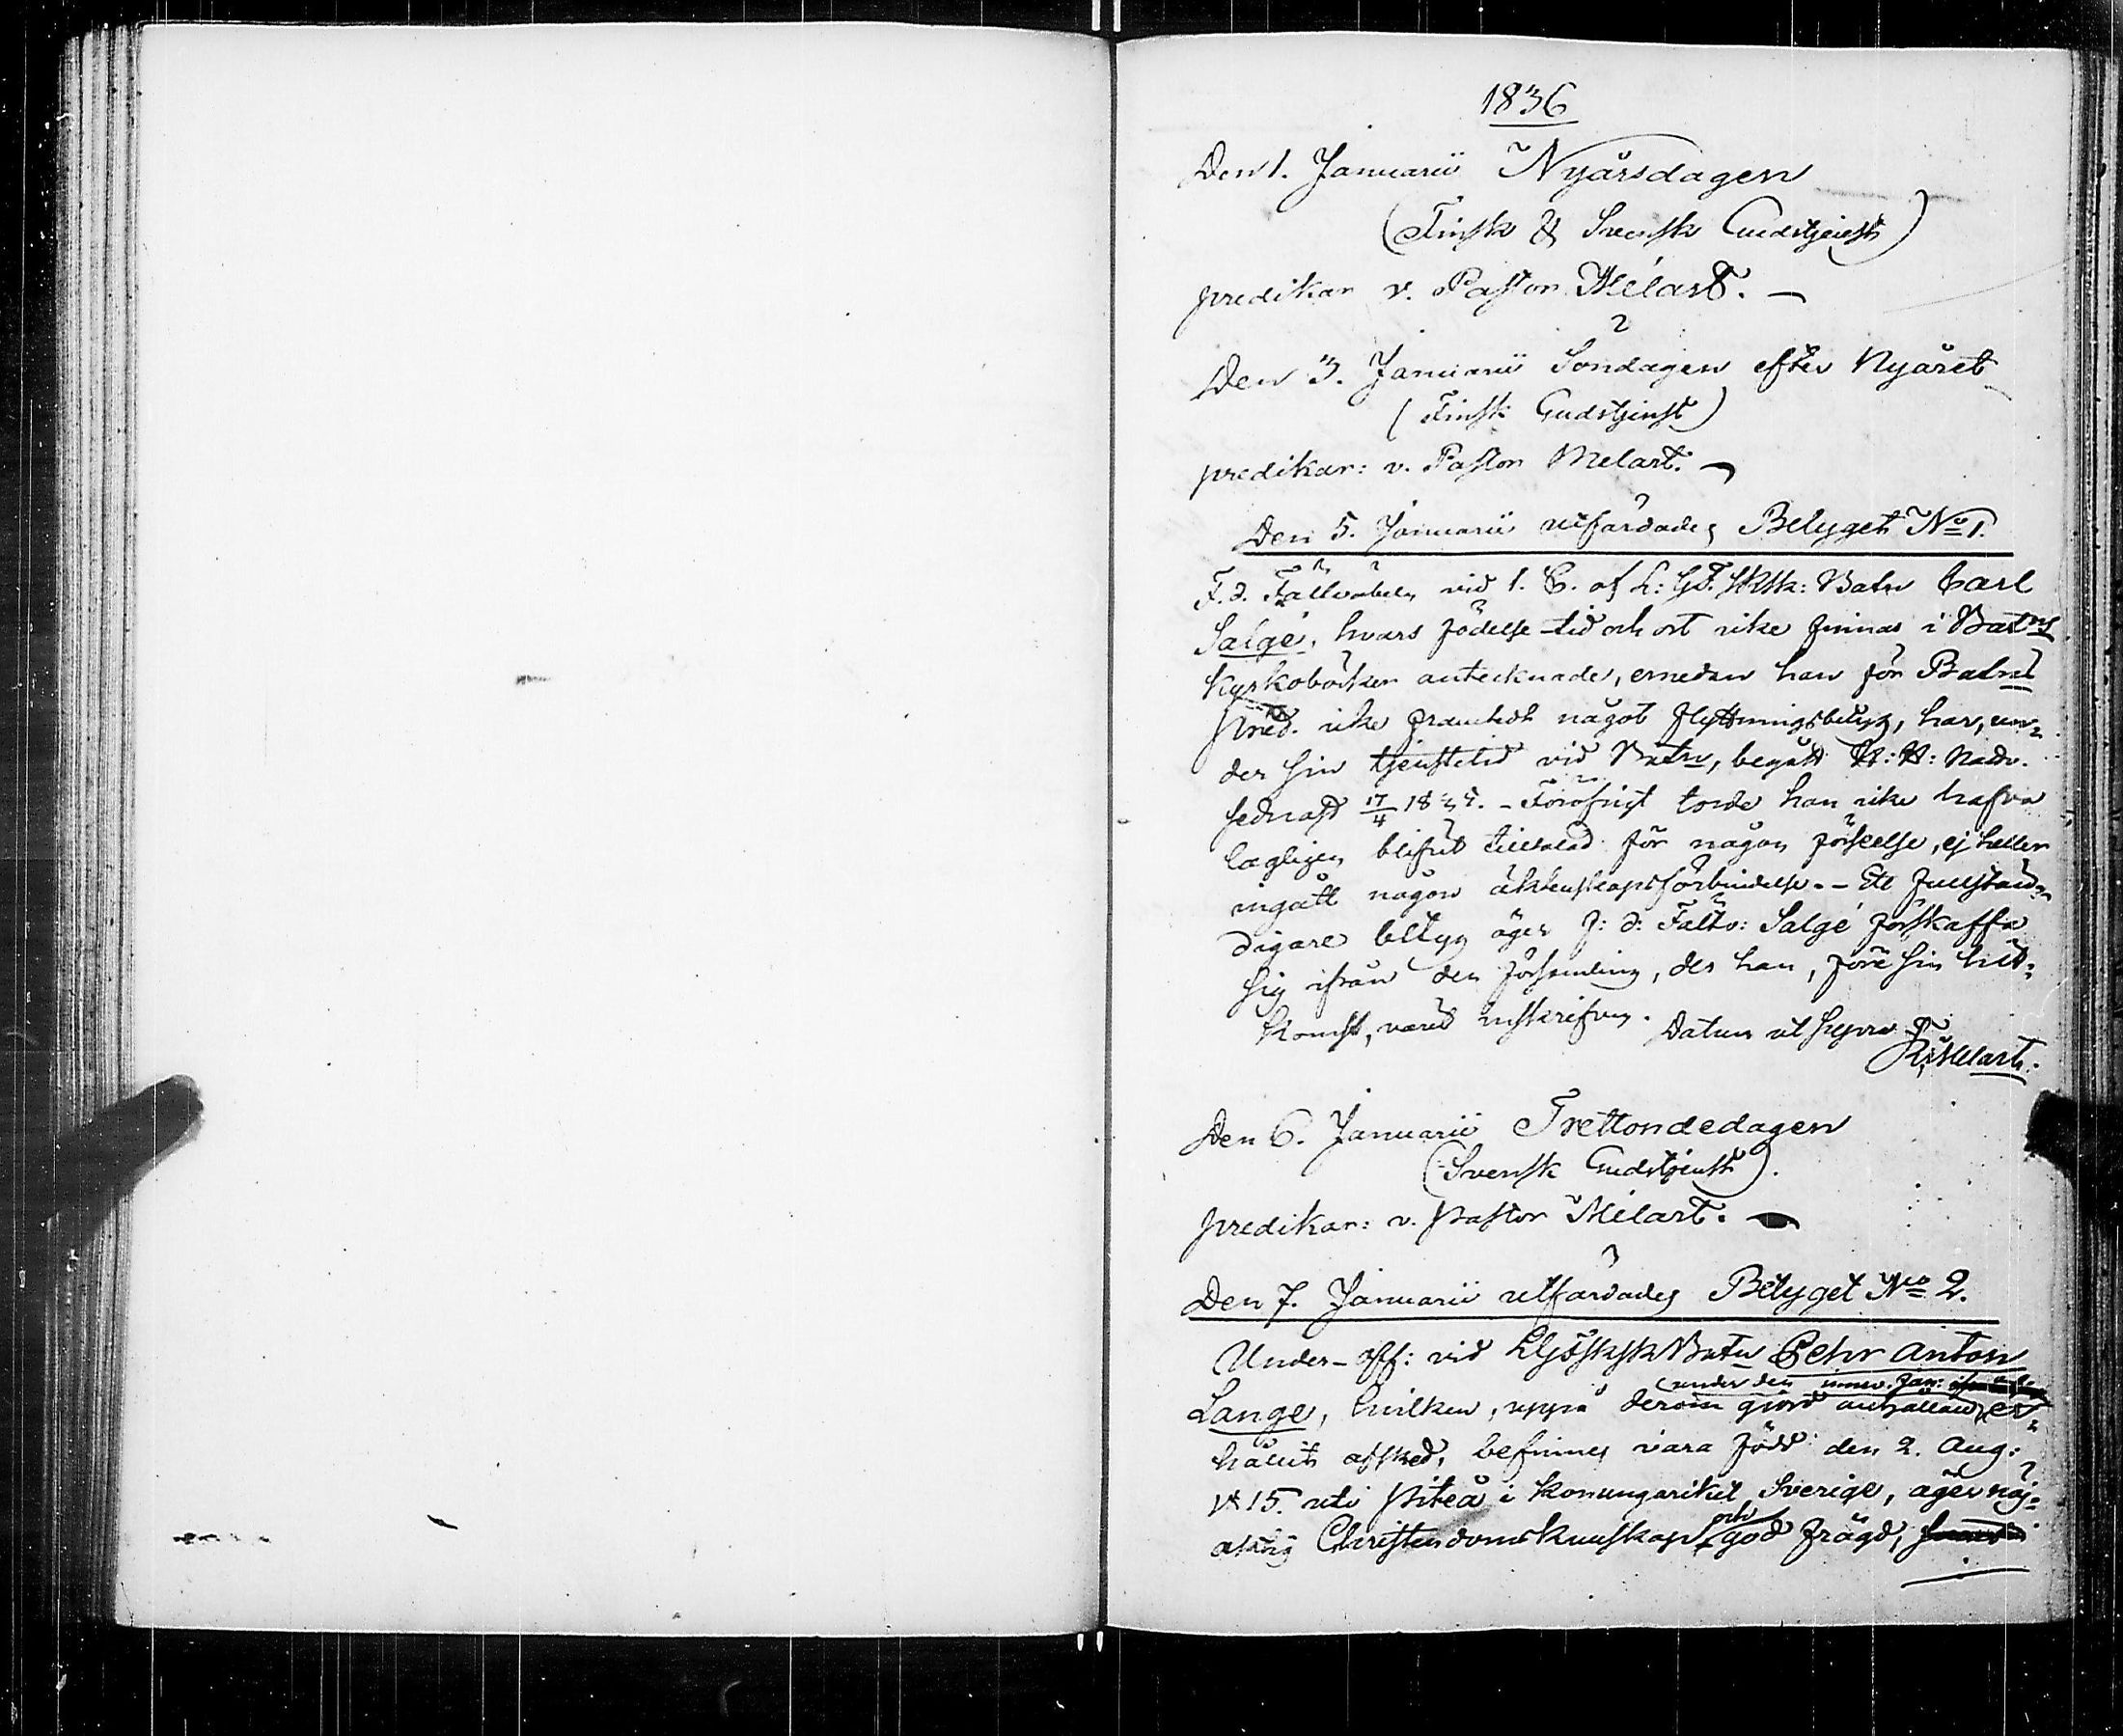 1836
Den 1. Januarii Nyårsdagen
(Finsk & Svensk Gudstjenst)
predikar v. Pastor Melart. —
Den 3. Januarii Söndagen efter Nyåret
(Finsk Gudstjenst)
predikar: v. Pastor Melart. —
Den 5. Januarii utfärdades Betyget No 1.
F. d. Fältväbeln vid 1. C. af L: Gd. Sksk: Batn Carl
Salgé, hvars födelse-tid och ort icke finnas i Batns
Kyrkoböcker antecknade, emedan han för Batns
Pred. icke framtedt något flyttningsbetyg, har, un-
der sin tjenstetid vid Batn, begått H: H: Nattv.
sednast 17/4 1834. - Föröfrigt torde han icke hafva
lagligen blifvit tilltalad för någon förseelse, ej heller
ingått någon äktenskapsförbindelse. - Ett fullstän-
digare betyg äger f: d: Fältv: Salgé förskaffa
sig ifrån den församling, der han, före sin hit-
komst, varit inskrifven. Datum ut supra
F: Melart.
Den 6. Januarii Trettondedagen
(Svensk Gudstjenst).
predikar: v. Pastor Melart. —
Den 7. Januarii utfärdades Betyget No 2.
Under-off: vid LGdSkSk Batn Pehr Anton
under den innev. Jan:
Lange, hvilken, uppå derom gjord anhållan, er-
hållit afsked, befinnes vara född den 2. Aug:
1815. uti Piteå i Konungariket Sverige, äger nöj-
aktig Christendomskunskap och god frägd,